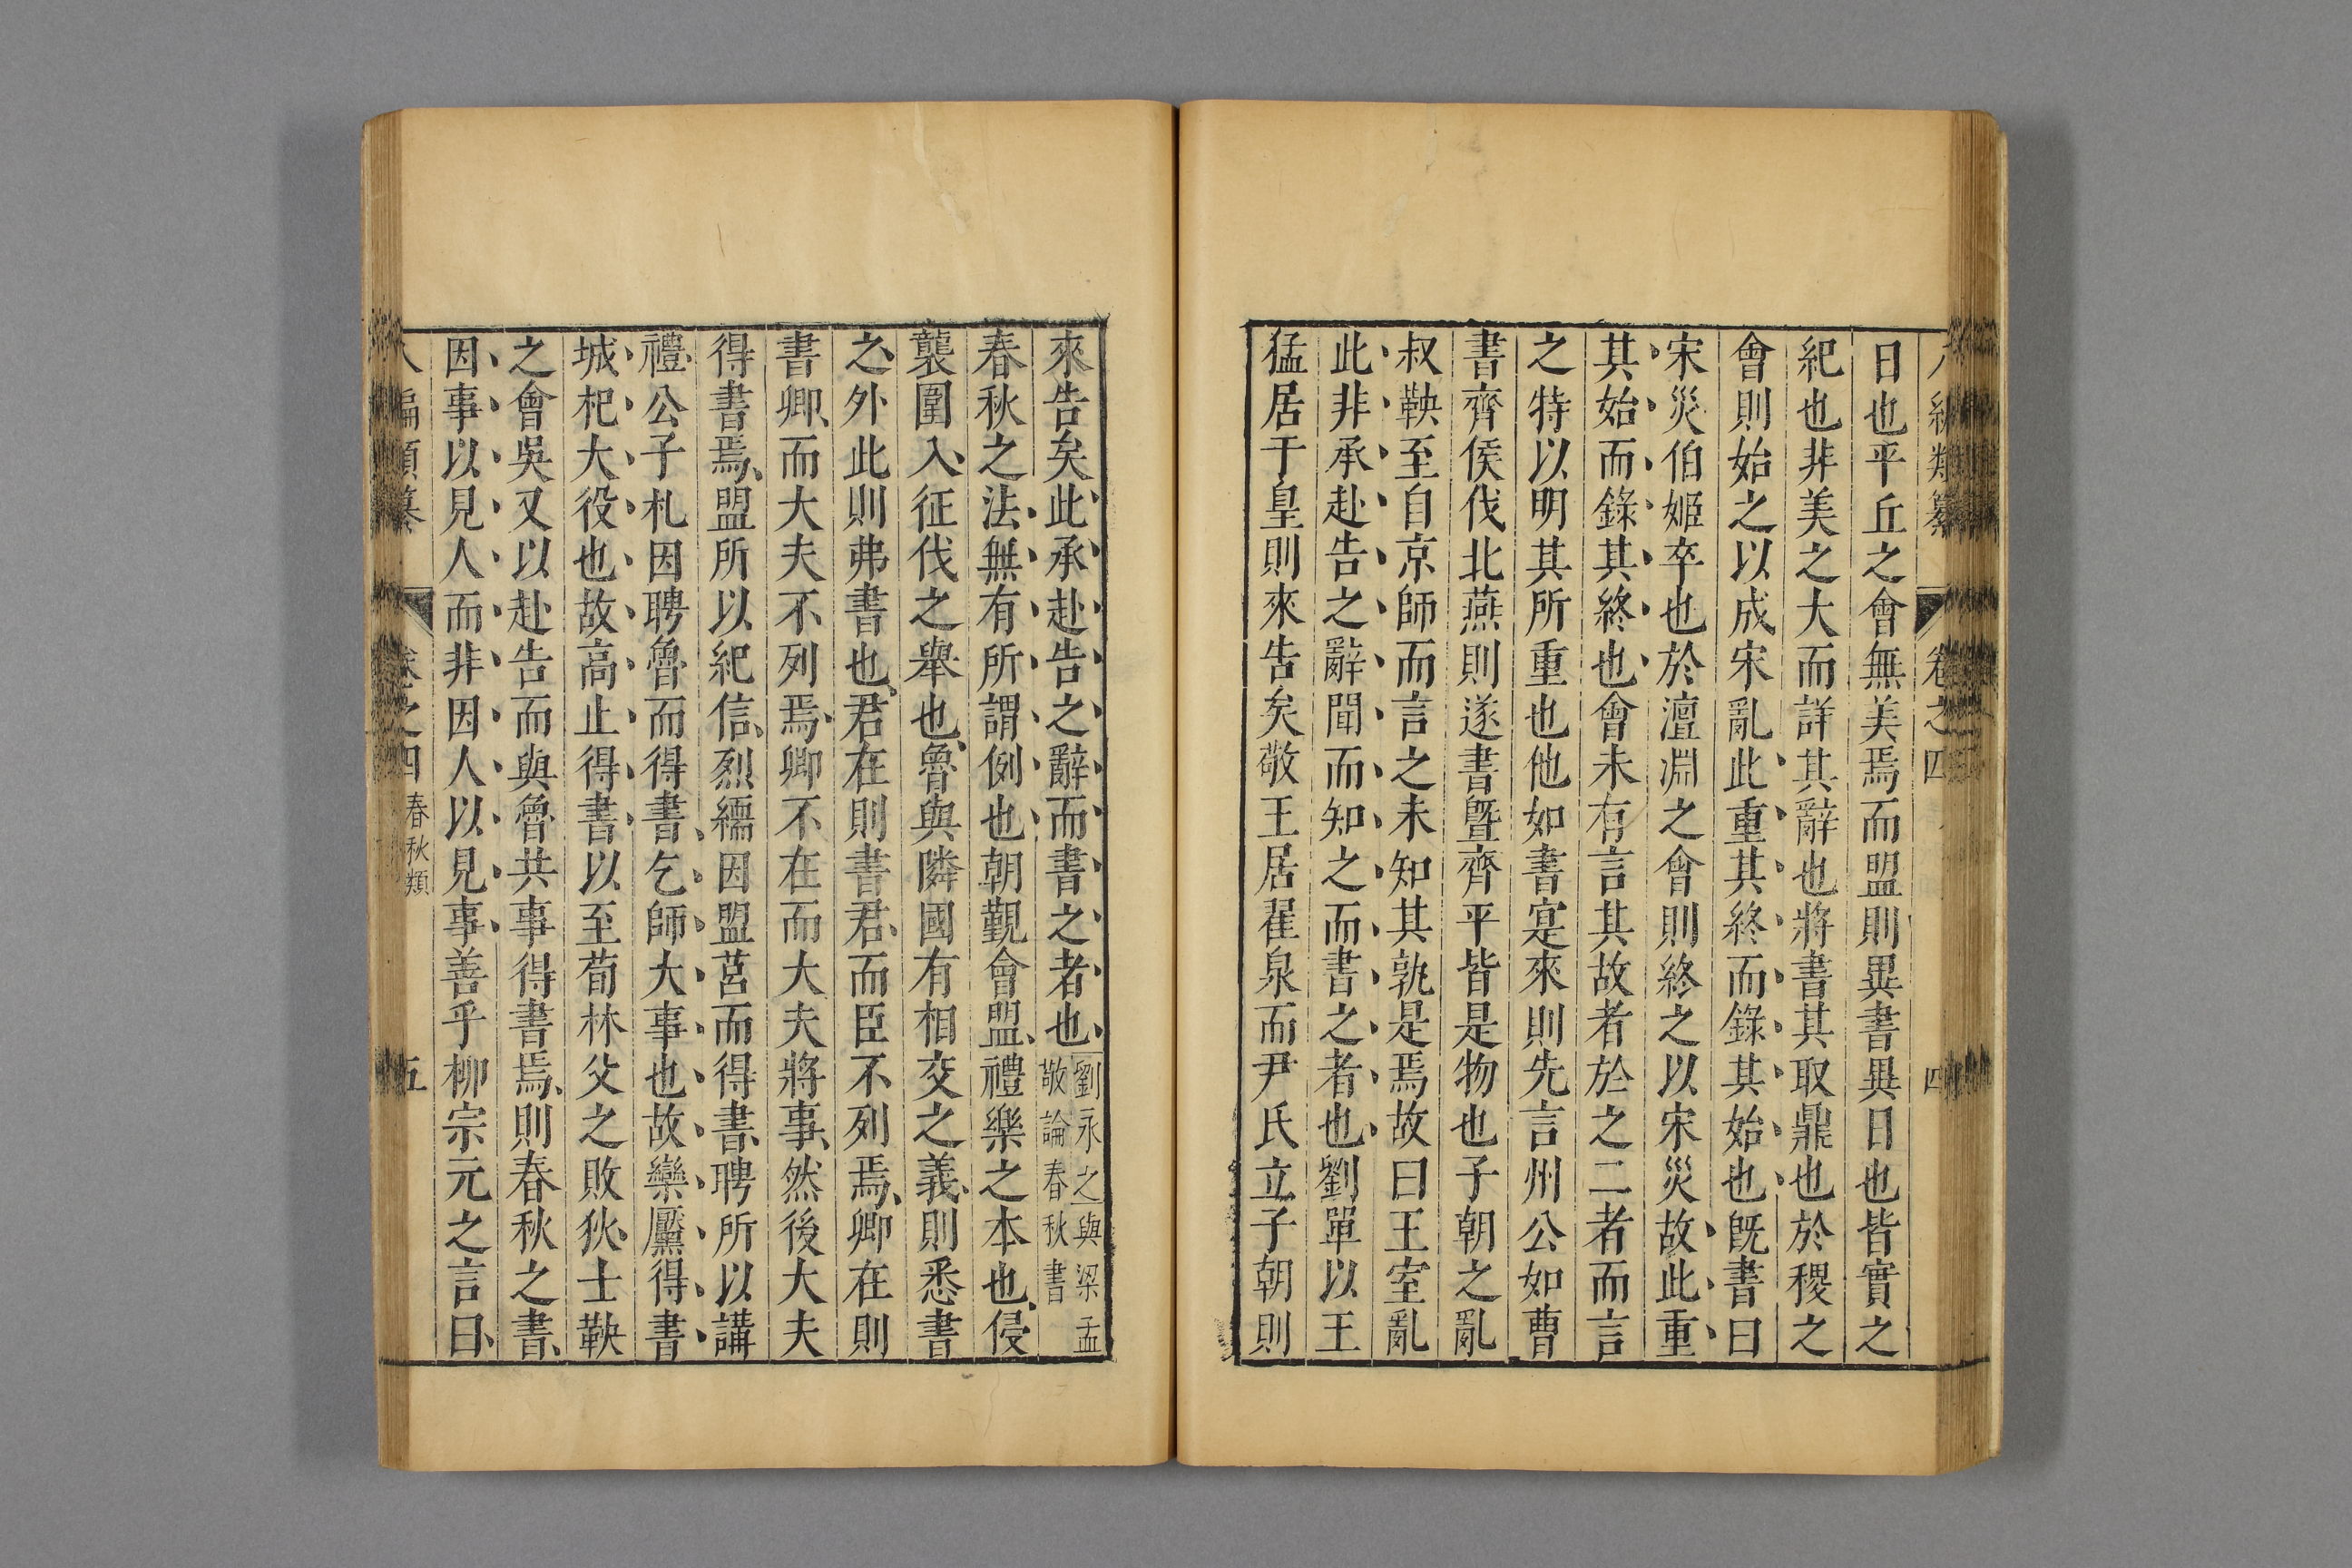 八編類纂 卷之四 四
日也平丘之會無美焉而盟則異書異日也皆實之
紀也非美之大而詳其辭也將書其取鼎也於稷之
會則始之以成宋亂此重其終而錄其始也旣書曰
宋災伯姬卒也於澶淵之會則終之以宋災故此重
其始而錄其終也會未有言其故者於之二者而言
之特以明其所重也他如書寔來則先言州公如曹
書齊侯伐北燕則遂書曁齊平皆是物也子朝之亂
叔鞅至自京師而言之未知其孰是焉故曰王室亂
此非承赴告之辭聞而知之而書之者也劉單以王
猛居于皇則來告矣敬王居翟泉而尹氏立子朝則
來告矣此承赴告之辭而書之者也劉永之與梁孟敬論春秋書
春秋之法無有所謂例也朝覲會盟禮樂之本也侵
襲圍入征伐之舉也魯與隣國有相交之義則悉書
之外此則弗書也君在則書君而臣不列焉卿在則
書卿而大夫不列焉卿不在而大夫將事然後大夫
得書焉盟所以紀信烈繻因盟莒而得書聘所以講
禮公子札因聘魯而得書乞師大事也故欒黶得書
城杞大役也故高止得書以至荀林父之敗狄士鞅
之會吳又以赴告而與魯共事得書焉則春秋之書
因事以見人而非因人以見事善乎柳宗元之言曰
八編類纂 卷之四 春秋類 五